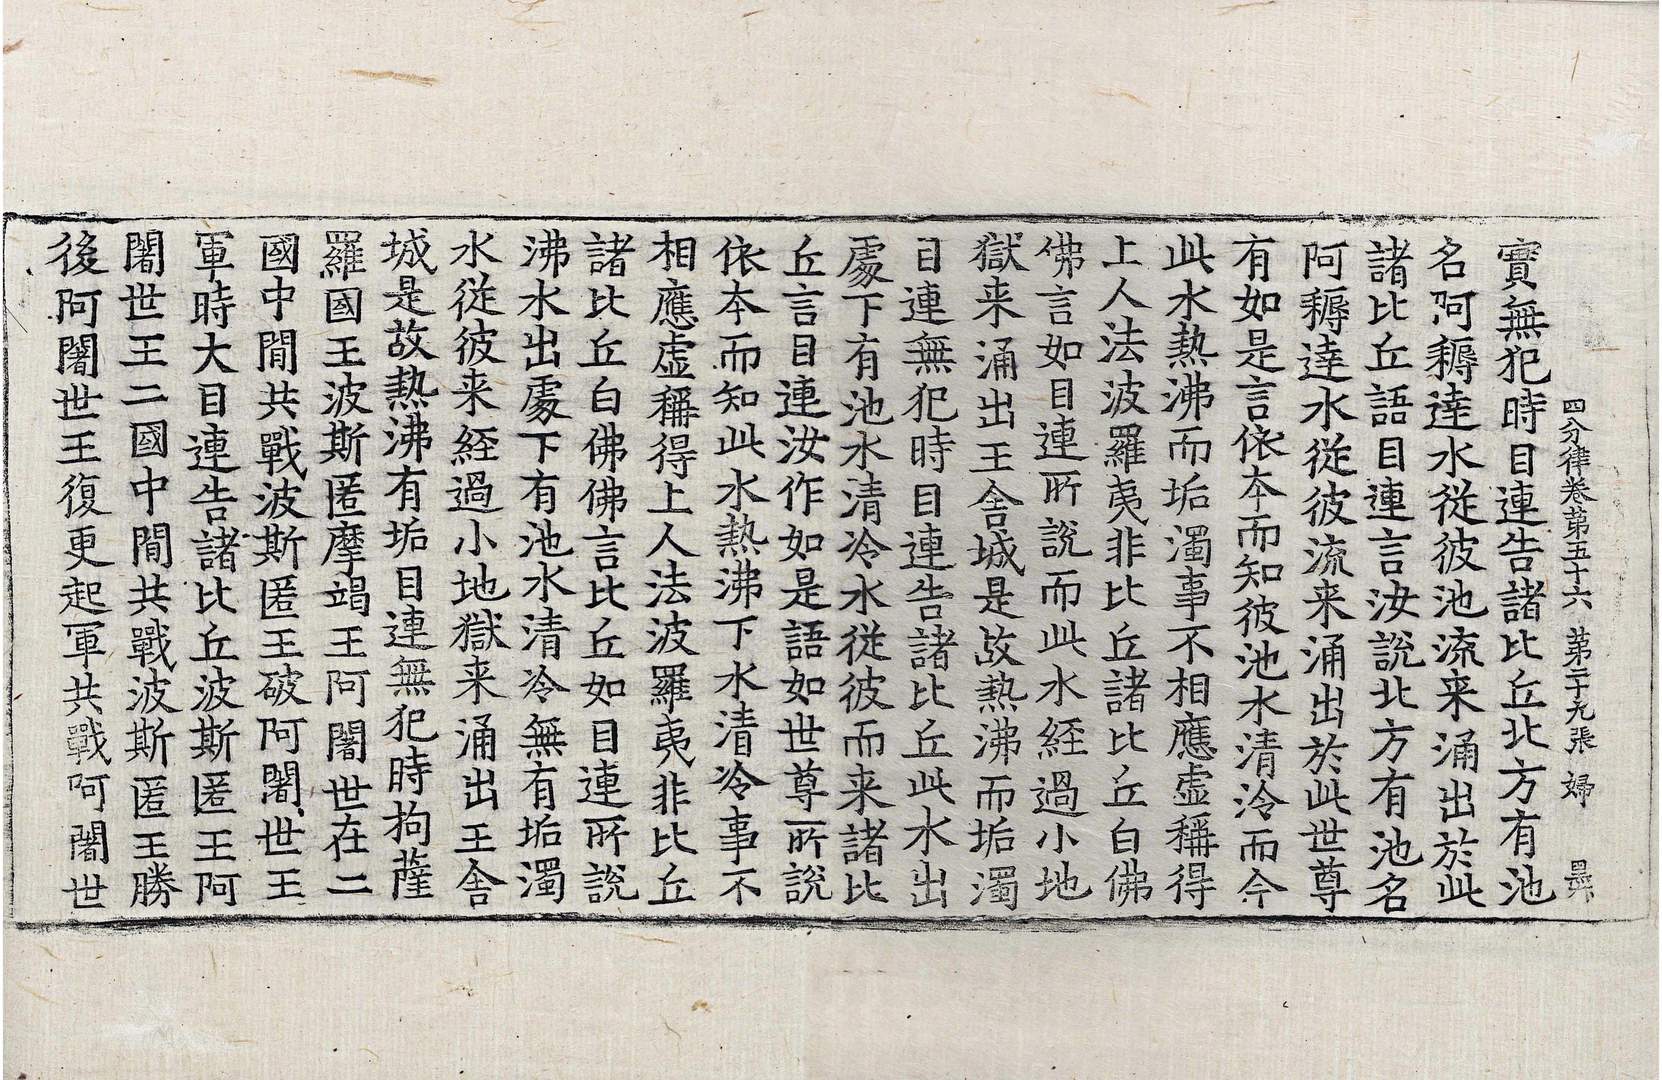 四分律卷第五十六 第二十九張 婦
實無犯時目連告諸比丘北方有池
名阿耨達水從彼池流来涌出於此
諸比丘語目連言汝說北方有池名
阿耨達水從彼流来涌出於此世尊
有如是言依本而知彼池水清冷而今
此水熱沸而垢濁事不相應虛稱得
上人法波羅夷非比丘諸比丘白佛
佛言如目連所說而此水經過小地
獄来涌出王舍城是故熱沸而垢濁
目連無犯時目連告諸比丘此水出
處下有池水清冷水從彼而来諸比
丘言目連汝作如是語如世尊所說
依本而知此水熱沸下水清冷事不
相應虛稱得上人法波羅夷非比丘
諸比丘白佛佛言比丘如目連所說
沸水出處下有池水清冷無有垢濁
水從彼来經過小地獄来涌出王舍
城是故熱沸有垢目連無犯時拘薩
羅國王波斯匿摩竭王阿闍世在二
國中閒共戰波斯匿王破阿闍世王
軍時大目連告諸比丘波斯匿王阿
闍世王二國中閒共戰波斯匿王勝
後阿闍世王復更起軍共戰阿闍世